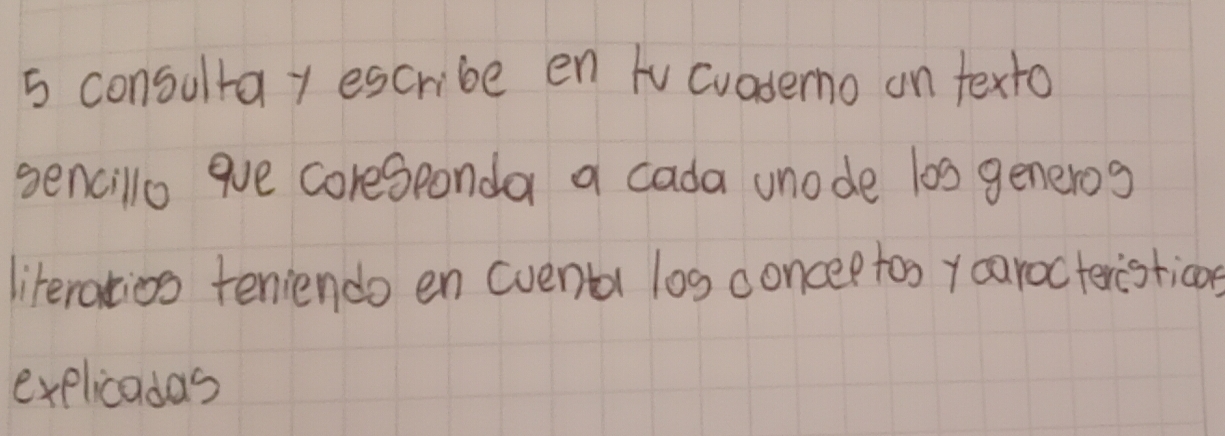 5 consulta y escribe en tu cuaderno un texto
sencillo que coresponda a cada uno de los generos
literarios teniendo en cuenta los conceptos y caracteristicas
explicadas